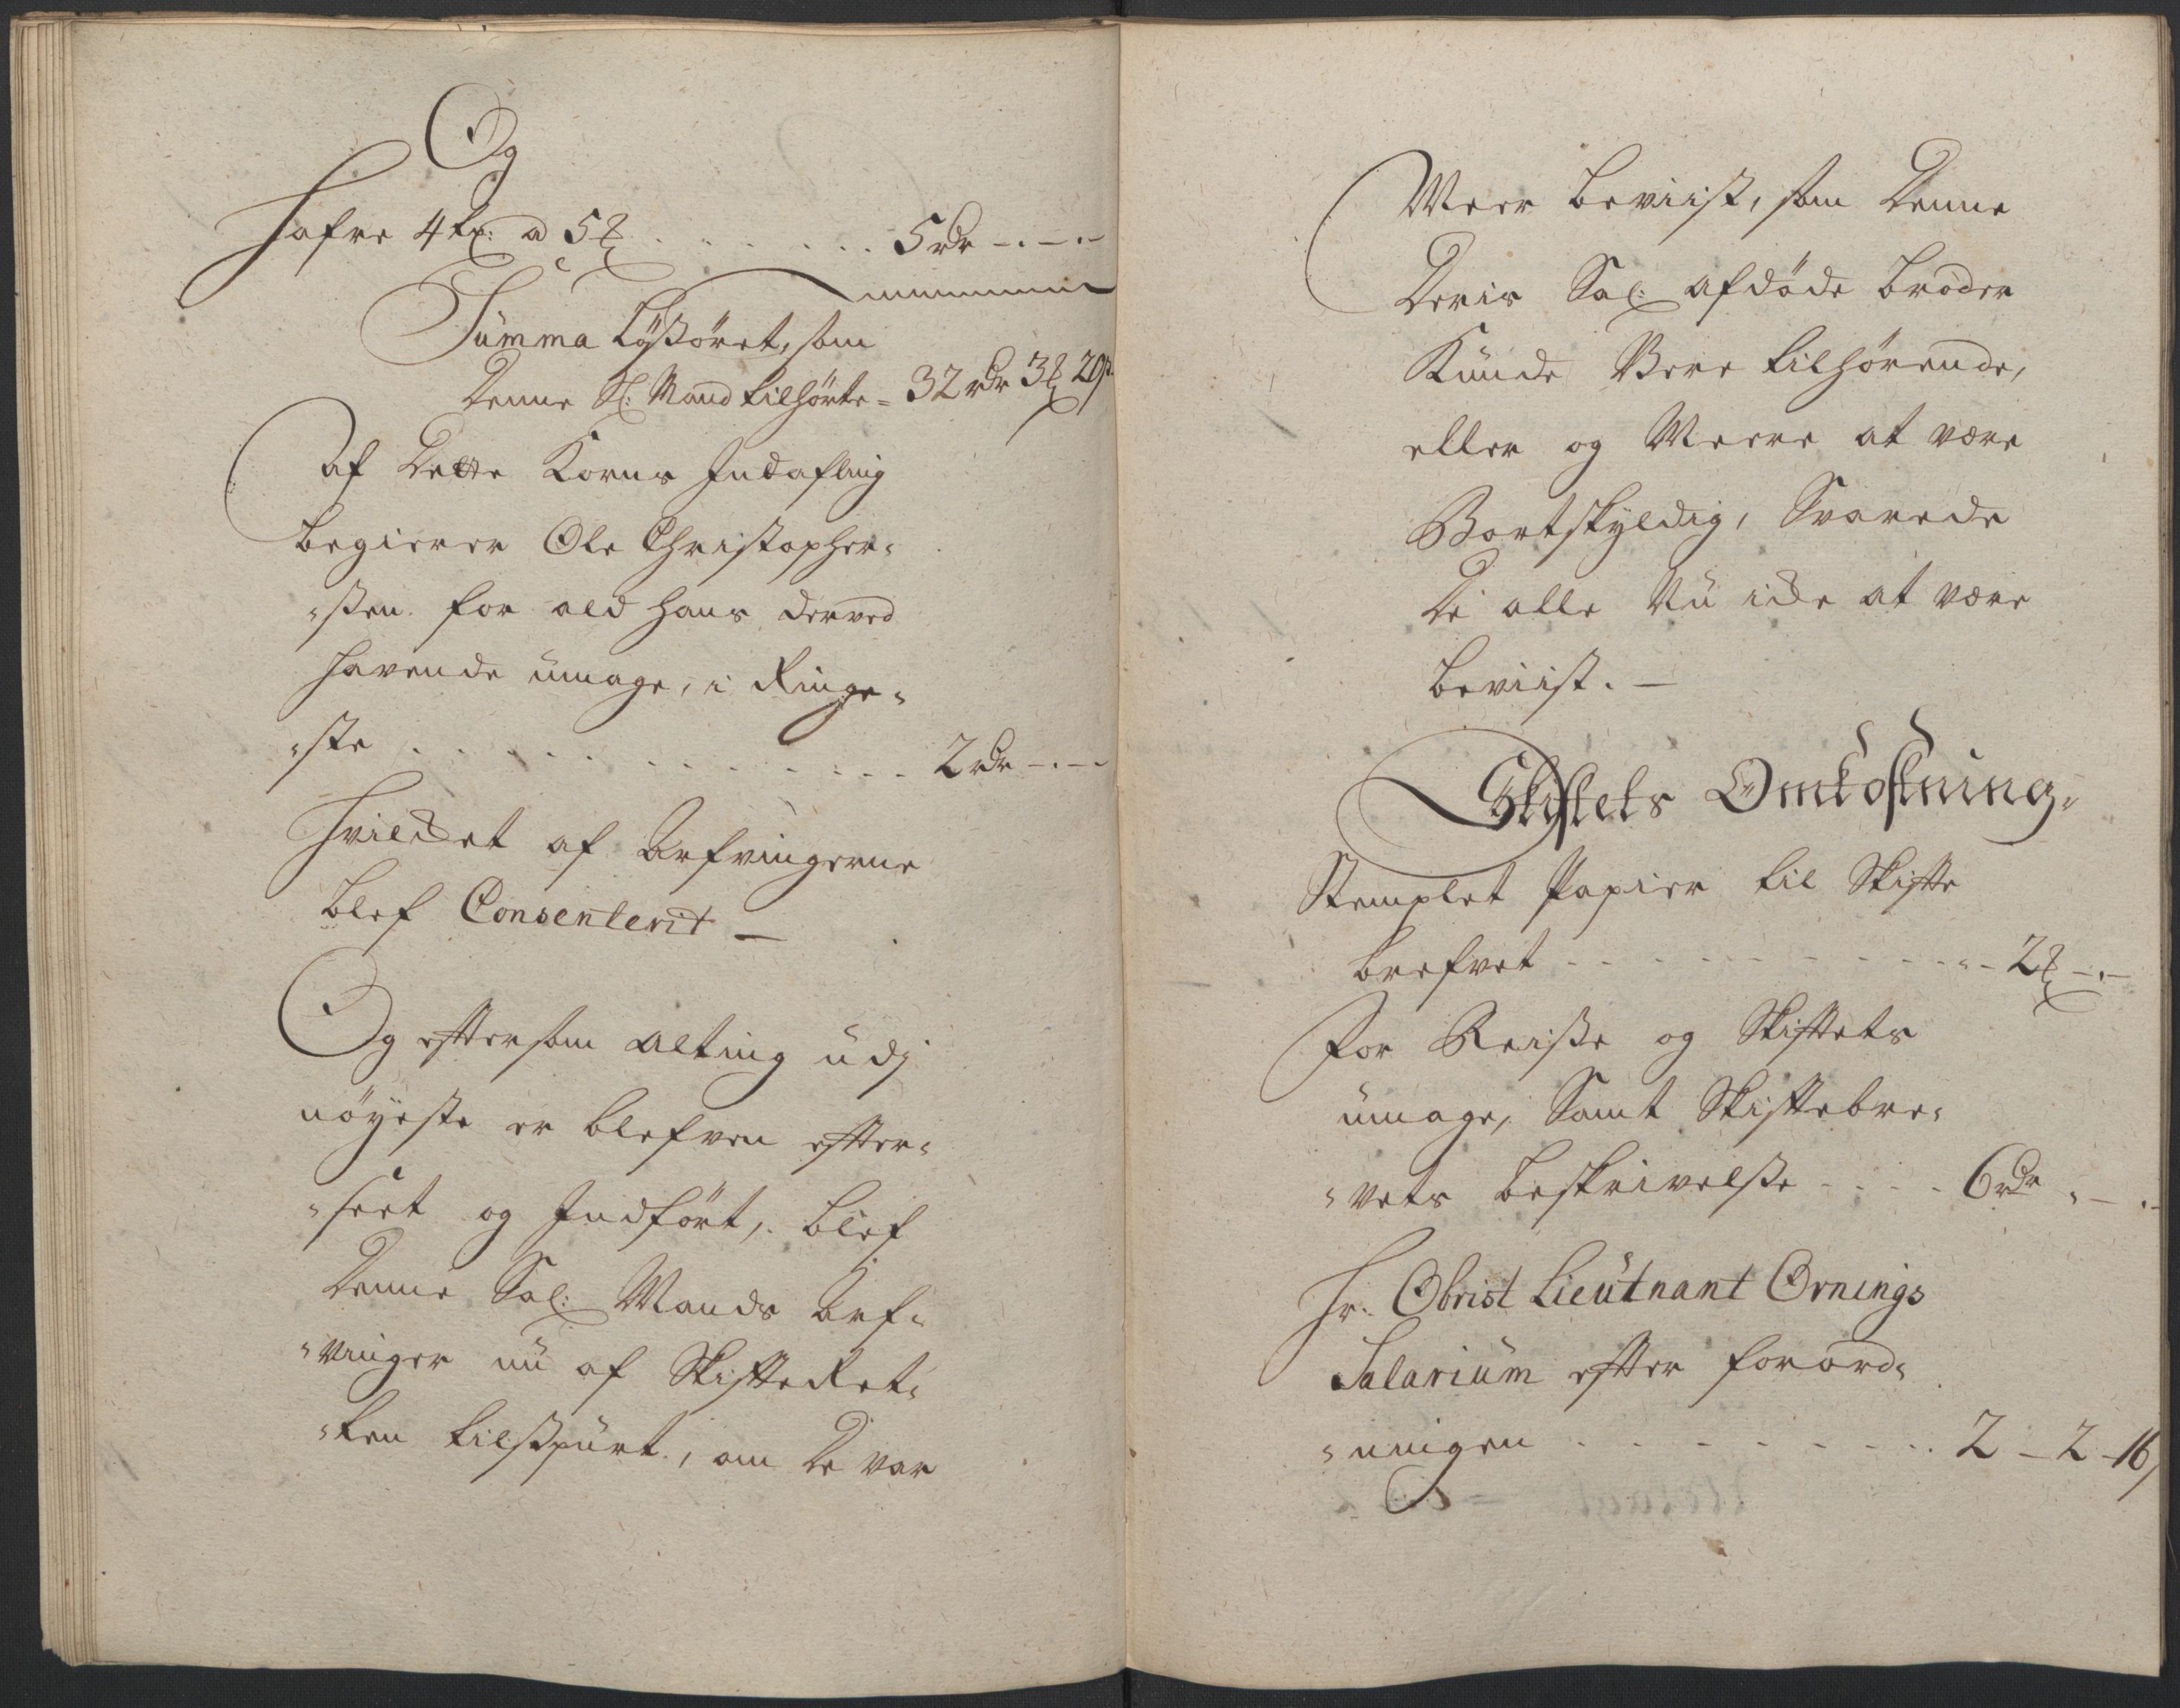 Og
Hafre 4 tr: a 5 ℔ . . . . . . . 5 rdr -.-.-
Summa Løßøret, som
Denne Sl: Mand tilhørte = 32 rdr 3 ℔ 20 s
Af Dette Korns Indafling
begierer Ole Christopher=
=sen for ald hans derved
havende umage, i Ringe=
=ste . . . . . . . . . . . . 2 rdr -.-.-
Hvilcket af Arfvingerne
blef Consenterit —
Og eftersom alting udj
nöyeste er blefven efter=
=seet og Indført, blef
Denne Sal: Mands Arf=
=vinger nu af SkifteRet=
=ten tilspurt, om De var
Meer beviist, som Denne
Deris Sal: afdøde broder
Kunde Vere tilhørende,
eller og Meere at være
Bortskyldig, Svarede
De alle Nu icke at være
beviist. —
Skiftets Omkostning,
Stemplet Papier til Skifte
brefvet - - - - - - - - - - - 2 ℔ -.-
For Reiße og Skiftets
umage, Samt Skiftebre=
=vets beskrivelße - - - - 6 rdr . - . -
Hr. Obrist Lieutnant Ornings
Salarium efter forord=
=ningen . . . . . . . . . 2 - 2 - 16